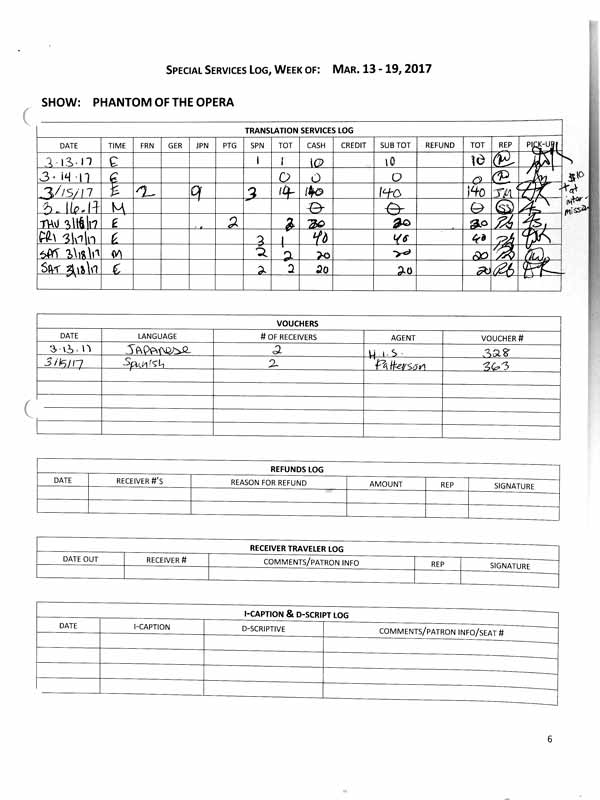 SPECIAL SERVICES LOG, WEEK OF: MAR. 13 - 19, 2017
SHOW: PHANTOM OF THE OPERA
TRANSLATION SERVICES LOG
DATE TIME FRN GER JPN PTG SPN TOT CASH CREDIT SUB TOT REFUND TOT REP PICK-UP
3-13-17 E 1 1 10 10 10
3-14-17 E 0 0 0 0
3/15/17 E 2 9 3 14 140 140 140 JM
$10 + at inter-mission
3.16.17 M 0 0 0 SS
THU 3/16/17 E 2 2 20 20 20
FRI 3/17/17 E 3 1 40 40 40
SAT 3/18/17 M 2 2 20 20 20
SAT 3/18/17 E 2 2 20 20 20
VOUCHERS
DATE LANGUAGE # OF RECEIVERS AGENT VOUCHER #
3-13-17 JAPANESE 2 H.I.S. 328
3/15/17 Spanish 2 Patterson 363
REFUNDS LOG
DATE RECEIVER #'S REASON FOR REFUND AMOUNT REP SIGNATURE
RECEIVER TRAVELER LOG
DATE OUT RECEIVER # COMMENTS/PATRON INFO REP SIGNATURE
I-CAPTION & D-SCRIPT LOG
DATE I-CAPTION D-SCRIPTIVE COMMENTS/PATRON INFO/SEAT #
6